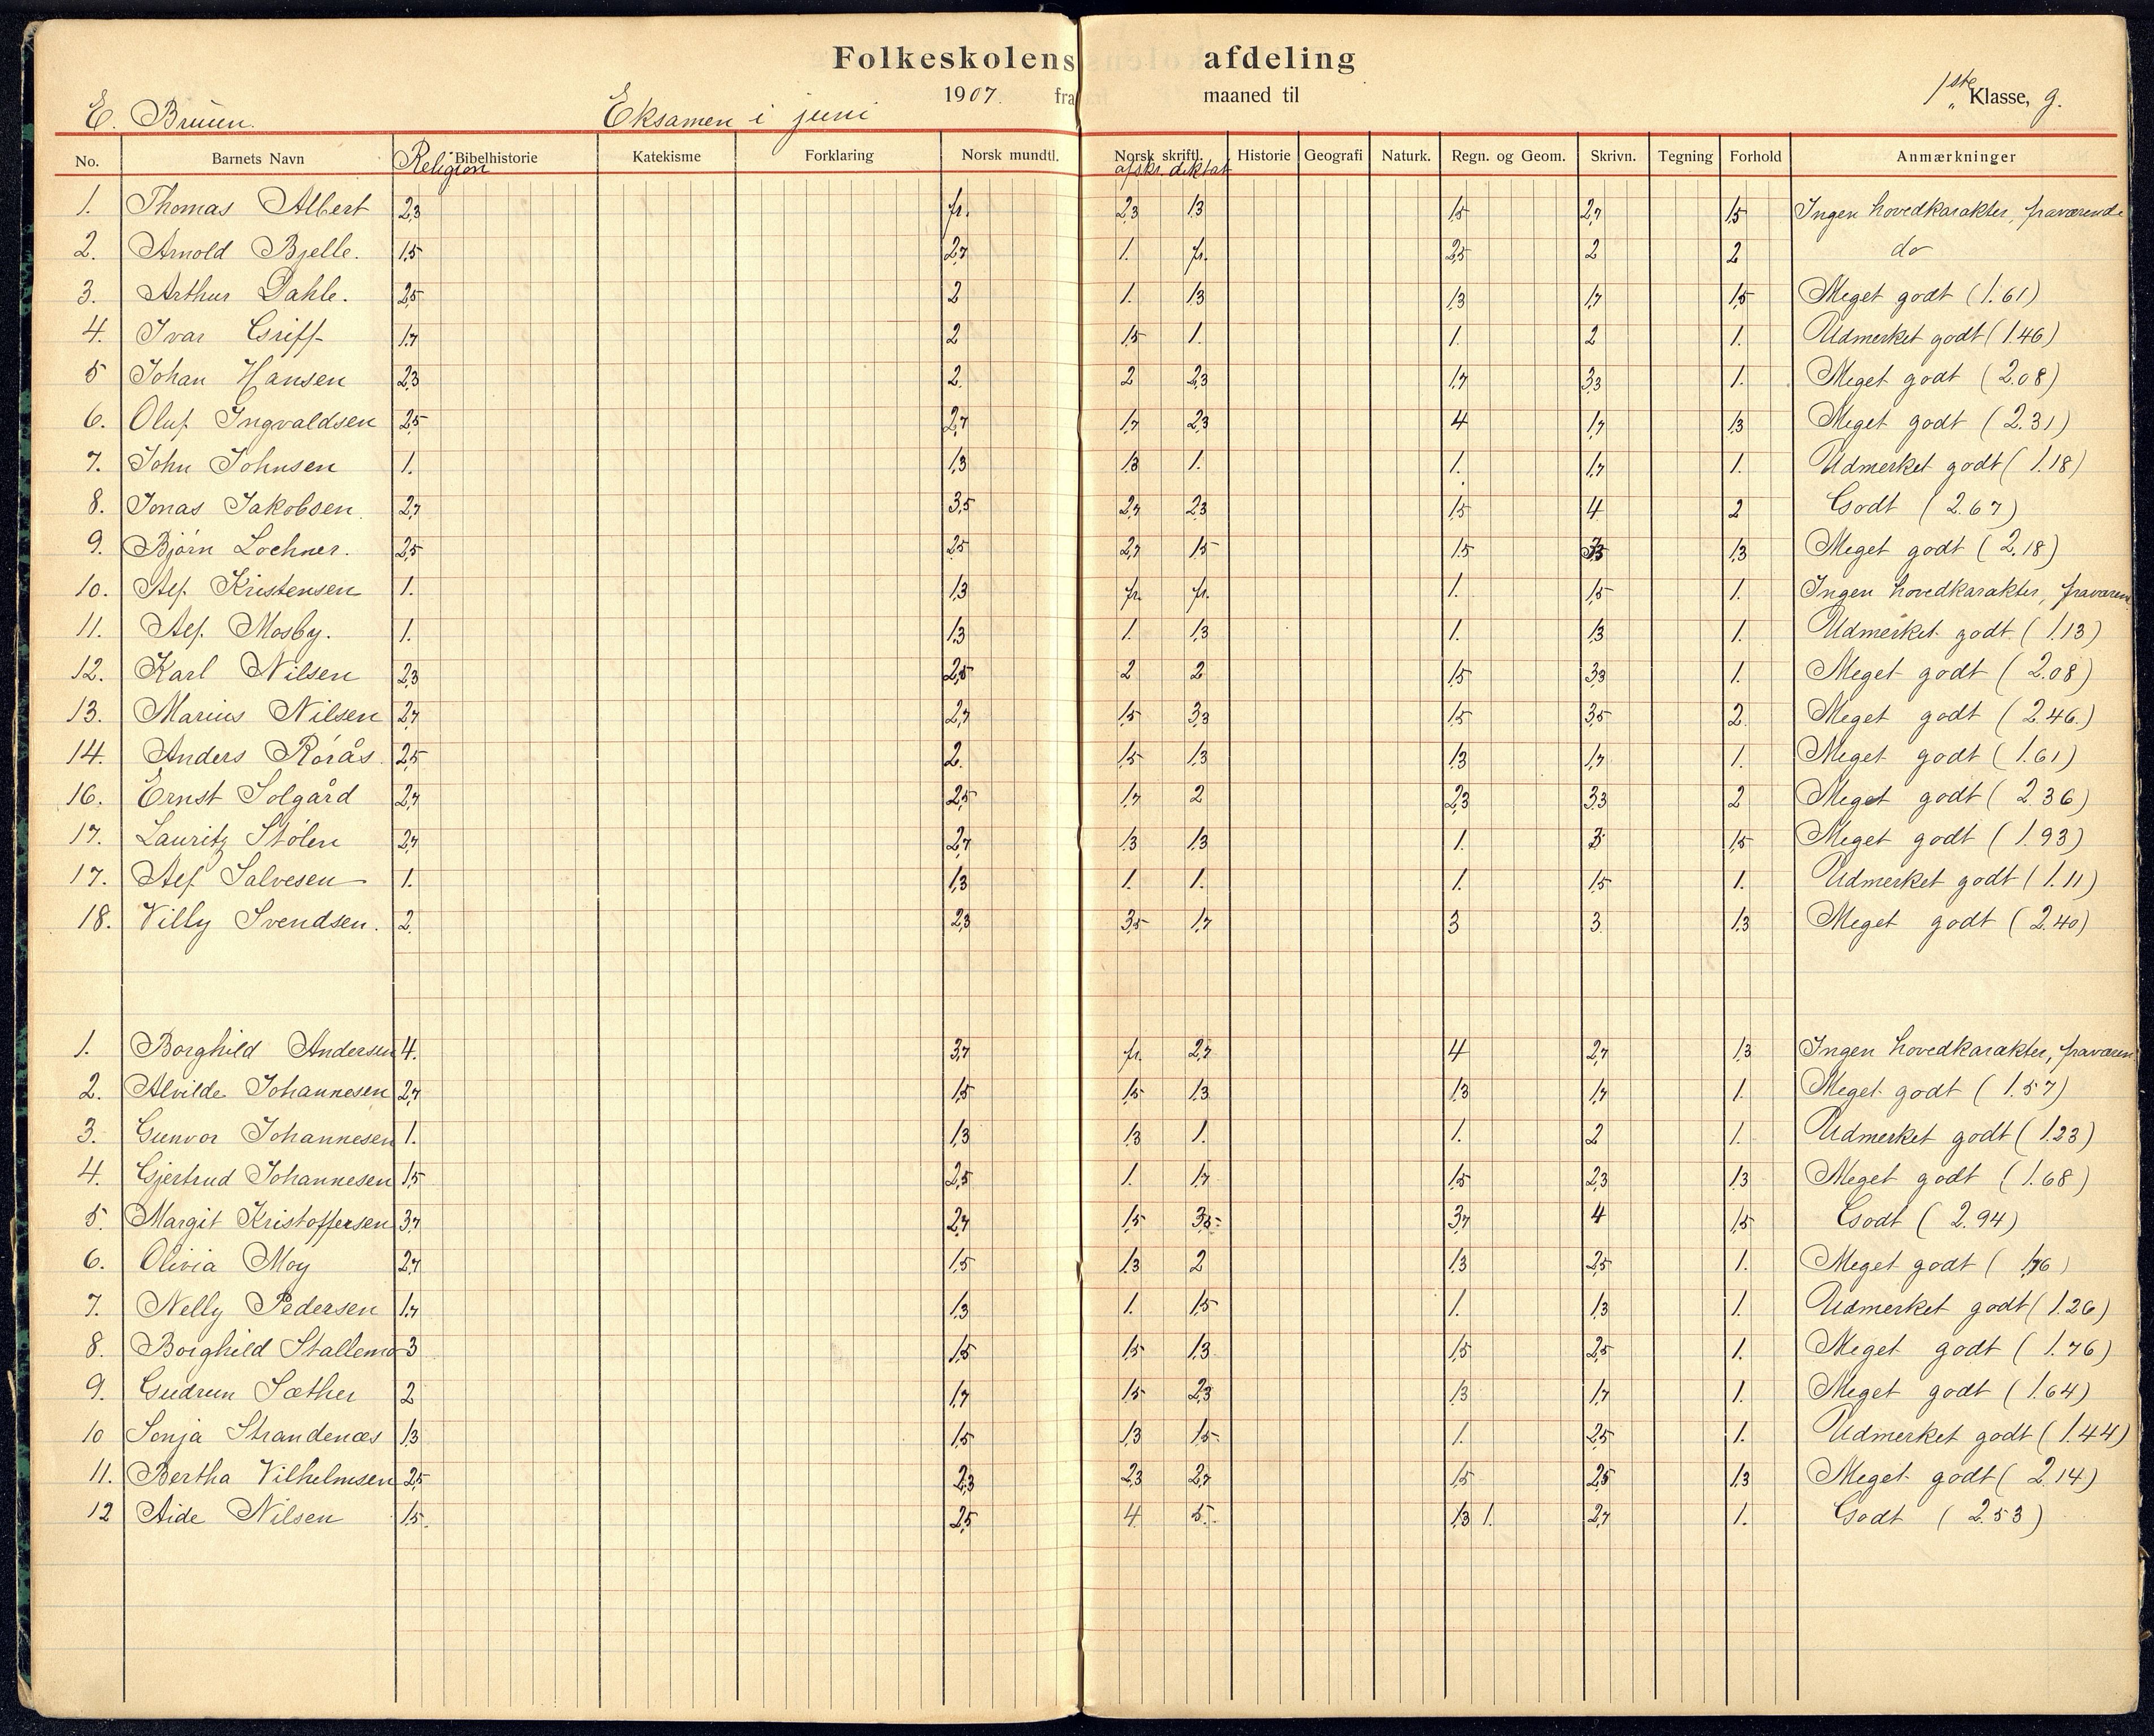 Folkeskolens afdeling
1907. fra maaned til 1ste Klasse, g.
E. Bruun. Eksamen i juni
No. Barnets Navn Religion Bibelhistorie Katekisme Forklaring Norsk mundtl. Norsk skriftl. Historie Geografi Naturk. Regn. og Geom. Skrivn. Tegning Forhold Anmærkninger
afskr. diktat
1. Thomas Albert 2,3 fr. 2,3 1,3 1,5 2,7 1,5 Ingen hovedkarakter, fraværende
2. Arnold Bjelle. 1,5 2,7 1. fr. 2,5 2 2 do
3. Arthur Dahle. 2,5 2 1. 1,3 1,3 1,7 1,5 Meget godt (1.61)
4. Ivar Griff 1,7 2 1,5 1. 1. 2 1. Udmerket godt (1.46)
5 Johan Hansen 2,3 2. 2 2,3 1,7 3,3 1. Meget godt (2.08)
6. Oluf Ingvaldsen 2,5 2,7 1,7 2,3 4 1,7 1,3 Meget godt (2.31)
7. John Johnsen 1. 1,3 1,3 1. 1. 1,7 1. Udmerket godt (1.18)
8. Jonas Jakobsen 2,7 3,5 2,7 2,3 1,5 4 2 Godt (2.67)
9. Bjørn Lochner. 2,5 2,5 2,7 1,5 1,5 3,3 1,3 Meget godt (2,18)
10. Alf. Kristensen 1. 1,3 fr. fr. 1. 1,5 1. Ingen hovedkarakter, fraværen
11. Alf. Mosby. 1. 1,3 1. 1,3 1. 1,3 1. Udmerket godt (1.13)
12. Karl Nilsen 2,3 2,5 2 2 1,5 3,3 1. Meget godt (2.08)
13. Marius Nilsen 2,7 2,7 1,5 3,3 1,5 3,5 2. Meget godt (2.46.)
14. Anders Rørås. 2,5 2. 1,5 1,3 1,3 1,7 1. Meget godt (1.61)
16. Ernst Solgård 2,7 2,5 1,7 2 2,3 3,3 2 Meget godt (2.36)
17. Lauritz Stølen 2,7 2,7 1,3 1,3 1. 3 1,5 Meget godt (1.93)
17. Alf. Salvesen 1. 1,3 1. 1. 1. 1,5 1. Udmerket godt (1.11)
18. Villy Svendsen. 2. 2,3 3,5 1,7 3 3. 1,3 Meget godt (2.40)
1. Borghild Andersen 4. 3,7 fr. 2,7 4 2,7 1,3 Ingen hovedkarakter, fraværen
2. Alvilde Johannesen 2,7 1,5 1,5 1,3 1,3 1,7 1. Meget godt (1.57)
3. Gunvor Johannesen 1. 1,3 1,3 1. 1. 2 1. Udmerket godt (1.23)
4. Gjertrud Johannesen 1,5 2,5 1. 1,7 1,5 2,3 1,3 Meget godt (1.68)
5. Margit Kristoffersen 3,7 2,7 1,5 3,5 3,7 4 1,5 Godt (2.94)
6. Olivia Moy 2,7 1,5 1,3 2 1,3 2,5 1. Meget godt (1,76)
7. Nelly Pedersen 1,7 1,3 1. 1,5 1. 1,3 1. Udmerket godt (1.26)
8. Borghild Stallemo 3 1,5 1,5 1,3 1,5 2,5 1. Meget godt (1.76)
9. Gudrun Sæther 2 1,7 1,5 2,3 1,3 1,7 1. Meget godt (1.64)
10 Sonja Strandenæs 1,3 1,5 1,3 1,5 1. 2,5 1. Udmerket godt (1.44)
11. Bertha Vilhelmsen 2,5 2,3 2,3 2,7 1,5 2,5 1,3 Meget godt (2.14)
12 Aide Nilsen 1,5. 2,5 4 5. 1,3 1. 2,7 1. Godt (2.53)